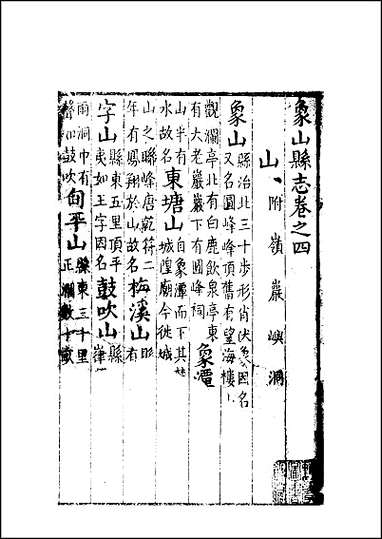 象山縣志卷之四
山、附嶺巖嶼洞
象山 縣治北三十步形肖伏象因名
又名圓峰峰頂舊有望海樓
觀瀾亭北有白鹿飲泉亭東
有大老巖巖下有國峰祠 象潭
山半有
水故名 東塘山 自象潭而下其
城隍廟今徙城
山之聯峰唐乾符二
年有鳳翔於山故名 梅溪山
有
字山 縣東五里頂平
夷如王字因名 鼓吹山 縣
雨洞中有
聲如鼓吹 甸平山 縣東三十里
正 數十畝